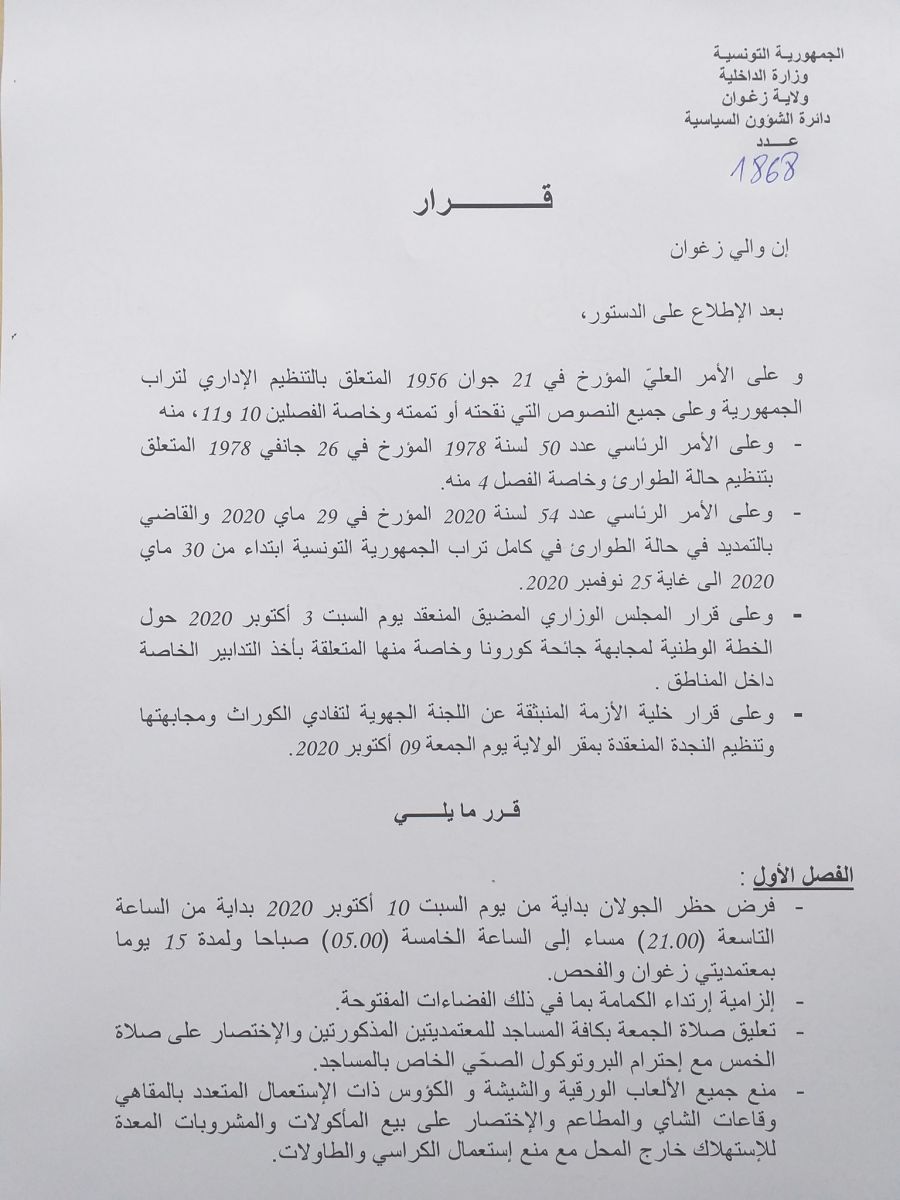 الجمهورية التونسية
وزارة الداخلية
ولاية زغوان
دائرة الشؤون السياسية
عـــدد
1868
قـــــــــرار
إن والي زغوان
بعد الإطلاع على الدستور،
و على الأمر العليّ المؤرخ في 21 جوان 1956 المتعلق بالتنظيم الإداري لتراب
الجمهورية وعلى جميع النصوص التي نقحته أو تممته وخاصة الفصلين 10 و11، منه
- وعلى الأمر الرئاسي عدد 50 لسنة 1978 المؤرخ في 26 جانفي 1978 المتعلق
بتنظيم حالة الطوارئ وخاصة الفصل 4 منه.
- وعلى الأمر الرئاسي عدد 54 لسنة 2020 المؤرخ في 29 ماي 2020 والقاضي
بالتمديد في حالة الطوارئ في كامل تراب الجمهورية التونسية ابتداء من 30 ماي
2020 الى غاية 25 نوفمبر 2020.
- وعلى قرار المجلس الوزاري المضيق المنعقد يوم السبت 3 أكتوبر 2020 حول
الخطة الوطنية لمجابهة جائحة كورونا وخاصة منها المتعلقة بأخذ التدابير الخاصة
داخل المناطق .
- وعلى قرار خلية الأزمة المنبثقة عن اللجنة الجهوية لتفادي الكوراث ومجابهتها
وتنظيم النجدة المنعقدة بمقر الولاية يوم الجمعة 09 أكتوبر 2020.
قـرر ما يلـــــي
الفصل الأول :
- فرض حظر الجولان بداية من يوم السبت 10 أكتوبر 2020 بداية من الساعة
التاسعة (21.00) مساء إلى الساعة الخامسة (05.00) صباحا ولمدة 15 يوما
بمعتمديتي زغوان والفحص.
- إلزامية إرتداء الكمامة بما في ذلك الفضاءات المفتوحة.
- تعليق صلاة الجمعة بكافة المساجد للمعتمديتين المذكورتين والإختصار على صلاة
الخمس مع إحترام البروتوكول الصحّي الخاص بالمساجد.
- منع جميع الألعاب الورقية والشيشة و الكؤوس ذات الإستعمال المتعدد بالمقاهي
وقاعات الشاي والمطاعم والإختصار على بيع المأكولات والمشروبات المعدة
للإستهلاك خارج المحل مع منع إستعمال الكراسي والطاولات.